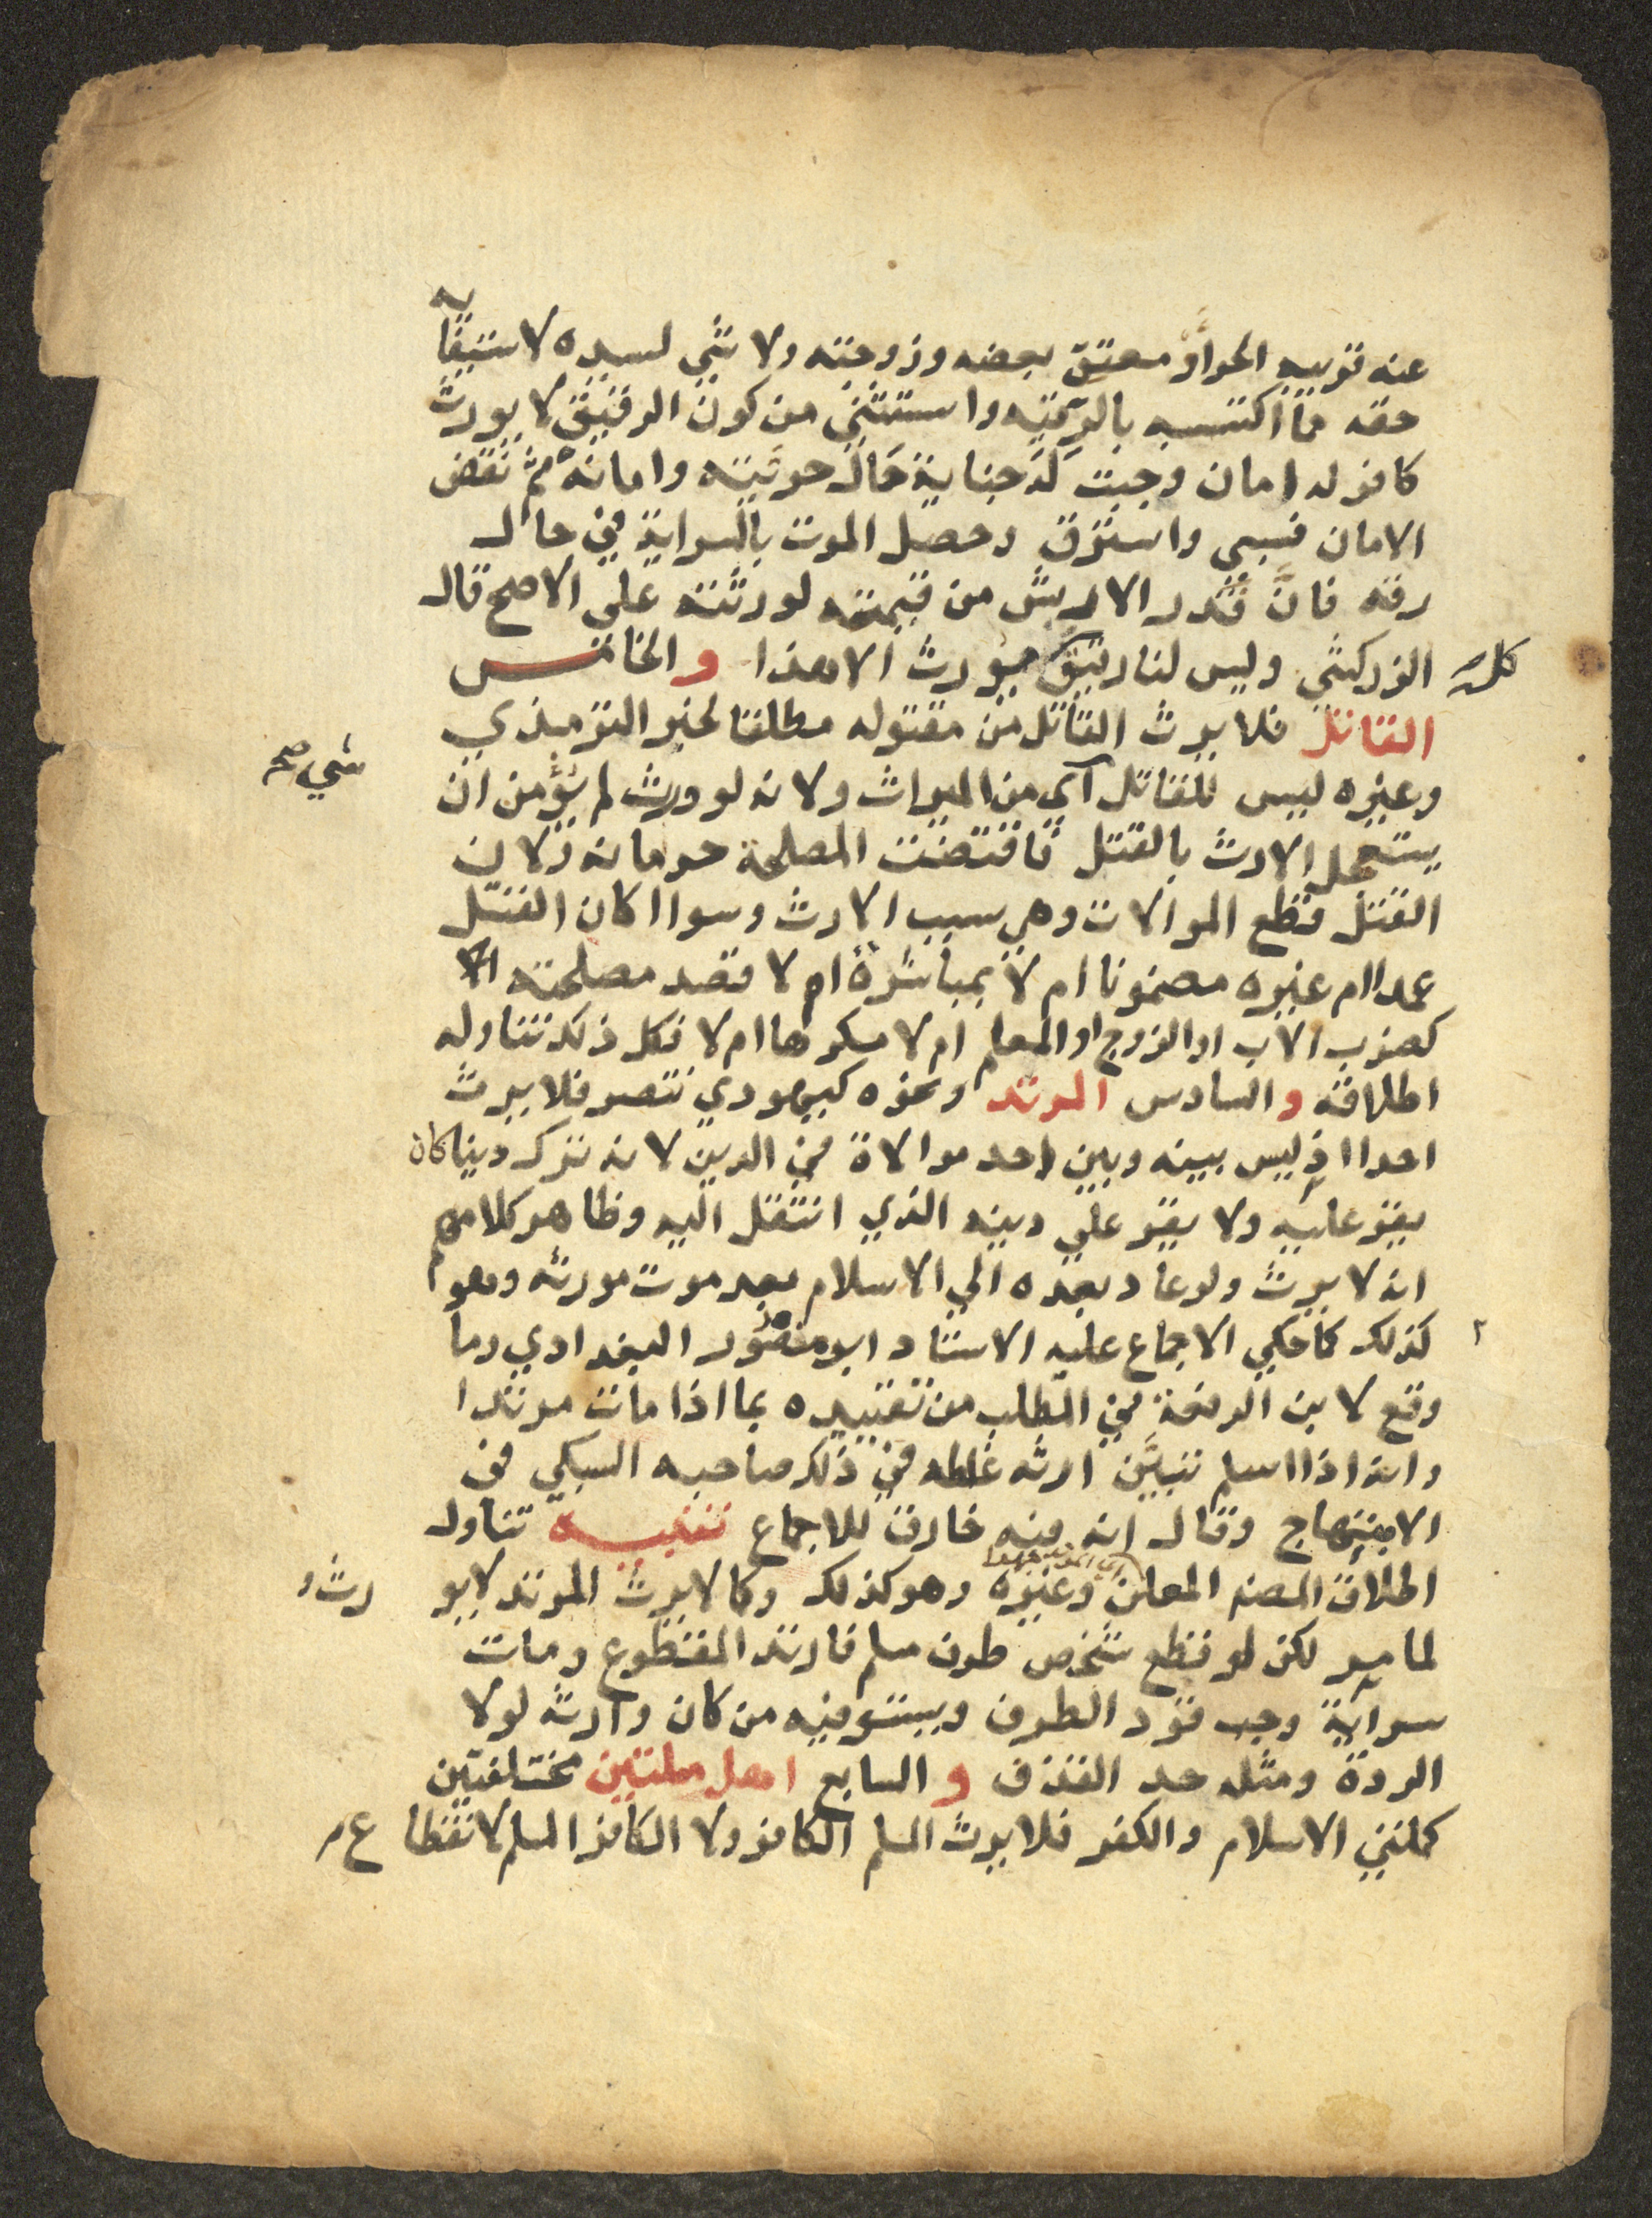 عنه قريبه الحر او معتق بعضه وزوجته ولا شي لسيده لاستيفايه
حقه مما اكتسبه بالرقية واستثني من كون الرقيق لا يورث
كافر له امان وجبت له جناية حال حريته وامانه ثم نقض
الامان فسبي واسترق وحصل الموت بالسراية في حال
رقه فان قدر الارش من قيمته لورثته على الاصح قال
الزركشي وليس لنا رقيق كله يورث الا هذا والخامس
القاتل فلا يرث القاتل من مقتوله مطلقا لخبر الترمذي
وغيره ليس للقاتل اي من الميراث شي صح ولانه لو ورث لم يؤمن ان
يستعجل الارث بالقتل فاقتضت المصلحة حرمانه ولان
القتل قطع الموالات وهي سبب الارث وسوا اكان القتل
عمدا ام غيره مضمونا ام لا بمباشرة ام لا قصد مصلحته
كضرب الاب او الزوج او المعلم ام لا مكرها ام لا فكل ذلك تناوله
اطلاقه والسادس المرتد ونحوه كيهودي تنصر فلا يرث
احدا اذ ليس بينه وبين احد موالاة في الدين لانه ترك دينا كان
يقر عليه ولا يقر علي دينه الذي انتقل اليه وظاهر كلامهم
انه لا يرث ولو عاد بعده الي الاسلام بعد موت مورثه وهو
كذلك كما حكي الاجماع عليه الاستاد ابو منصور البغدادي وما
وقع لابن الرفعة في المطلب من تقييده بما اذا مات مرتدا
وانه اذا اسلم تبين ارثه غلطه في ذلك صاحبه السبكي في
الابتهاج وقال انه فيه خارق للاجماع تنبيه تناول
اطلاق المصنف المعلن وغيره وهو كذلك وكما لا يرث المرتد لا يورث
لما مر لكن لو قطع شخص طرف مسلم فارتد المقطوع ومات
سراية وجب قود الطرف ويستوفيه من كان وارثه لولا
الردة ومثله حد القذف والسابع اهل ملتين مختلفتين
كملتي الاسلام والكفر فلا يرث المسلم الكافر ولا الكافر المسلم لانقطاع